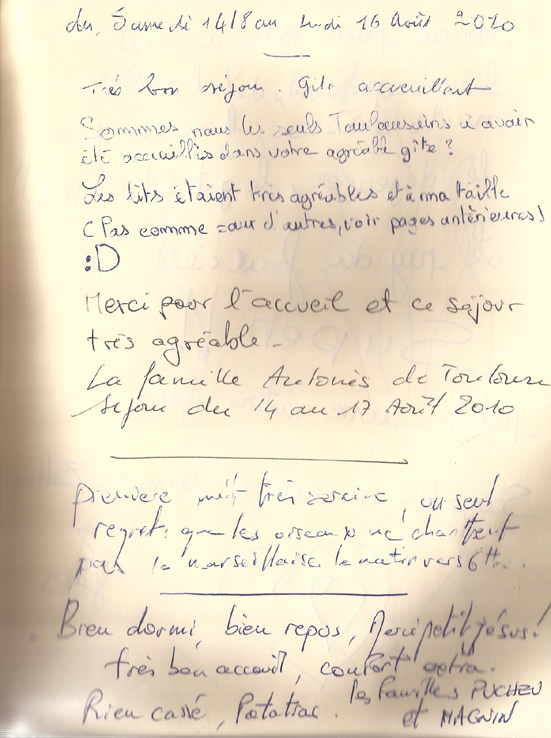 du Samedi 14/8 au Lundi 16 Août 2010
Très bon séjour. Gite accueillant
Sommes nous les seuls Toulousains à avoir
été accueillis dans votre agréable gîte ?
Les lits étaient très agréables et à ma taille
(Pas comme pour d'autres, voir pages antérieures)
:D
Merci pour l'accueil et ce séjour
très agréable.
La famille Antonès de Toulouse
séjour du 14 au 17 Août 2010
Première nuit très sereine, un seul
regret: que les oiseaux ne chantent
pas la marseillaise le matin vers 6H.
Bien dormi, bien repos, Merci petit jésus!
très bon accueil, confort extra.
les familles PUCHEU
Rien cassé, Patatras. et MAGNIN